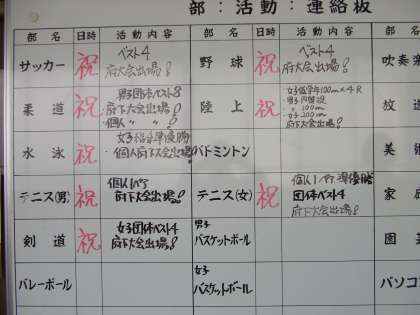 部：活動：連絡板
部 名 日時 活動内容 部 名 日時 活動内容 部
サッカー 祝 ベスト4
府大会出場！
野球 祝 ベスト4
府大会出場！
吹奏
柔道 祝 男子団体ベスト8
府下大会出場！
個人 〃 〃 ！
陸上 祝
・女子低学年100m×4R
〃 100m
・女子200m
府下大会出場！
放送
水泳 祝 準優勝
・個人府下大会出場！
バドミントン
美術
テニス(男) 祝 個人1ペア
府下大会出場！
テニス(女) 祝 個人1ペア準優勝
団体ベスト4
府下大会出場！
家庭
剣道 祝 女子団体ベスト4
府下大会出場！
男子
バスケットボール
園芸
バレーボール
女子
バスケットボール
パソコ